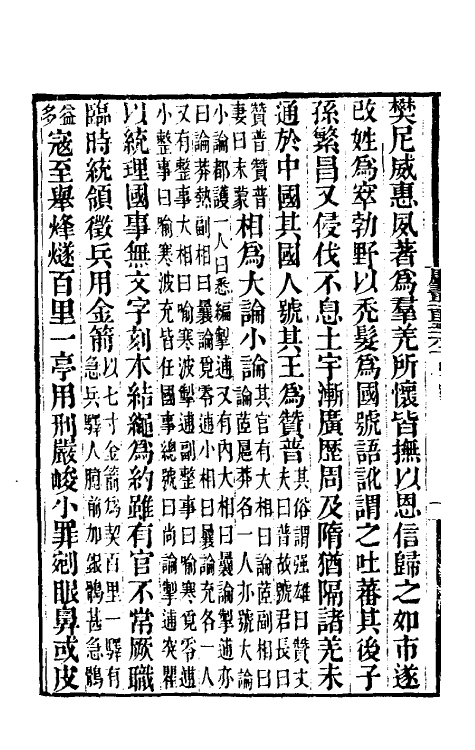 樊尼威惠夙著爲羣羌所懷皆撫以恩信歸之如市遂
改姓爲窣勃野以禿髮爲國號語訛謂之吐蕃其後子
孫繁昌又侵伐不息土宇漸廣歷周及隋猶隔諸羌未
通於中國其國人號其王爲贊普其俗謂强雄曰贊丈夫曰普故號君長曰
贊普贊普妻曰末蒙相爲大論小論其官有大相曰論茝副相曰論茝扈莽各一人亦號大論
小論都護一人曰悉編掣逋又有內大相曰曩論掣逋亦曰論莽熱副相曰曩論覓零逋小相曰曩論充各一人
又有整事大相曰喻寒波掣逋副整事曰喻寒覓零逋小整事曰喻寒波充皆任國事總號曰尚論掣逋突瞿
以統理國事無文字刻木結繩爲約雖有官不常厥職
臨時統領徵兵用金箭以七寸金箭爲契百里一驛有急兵驛人臆前加銀鶻甚急鶻
益多寇至舉烽燧百里一亭用刑嚴峻小罪剜眼鼻或皮